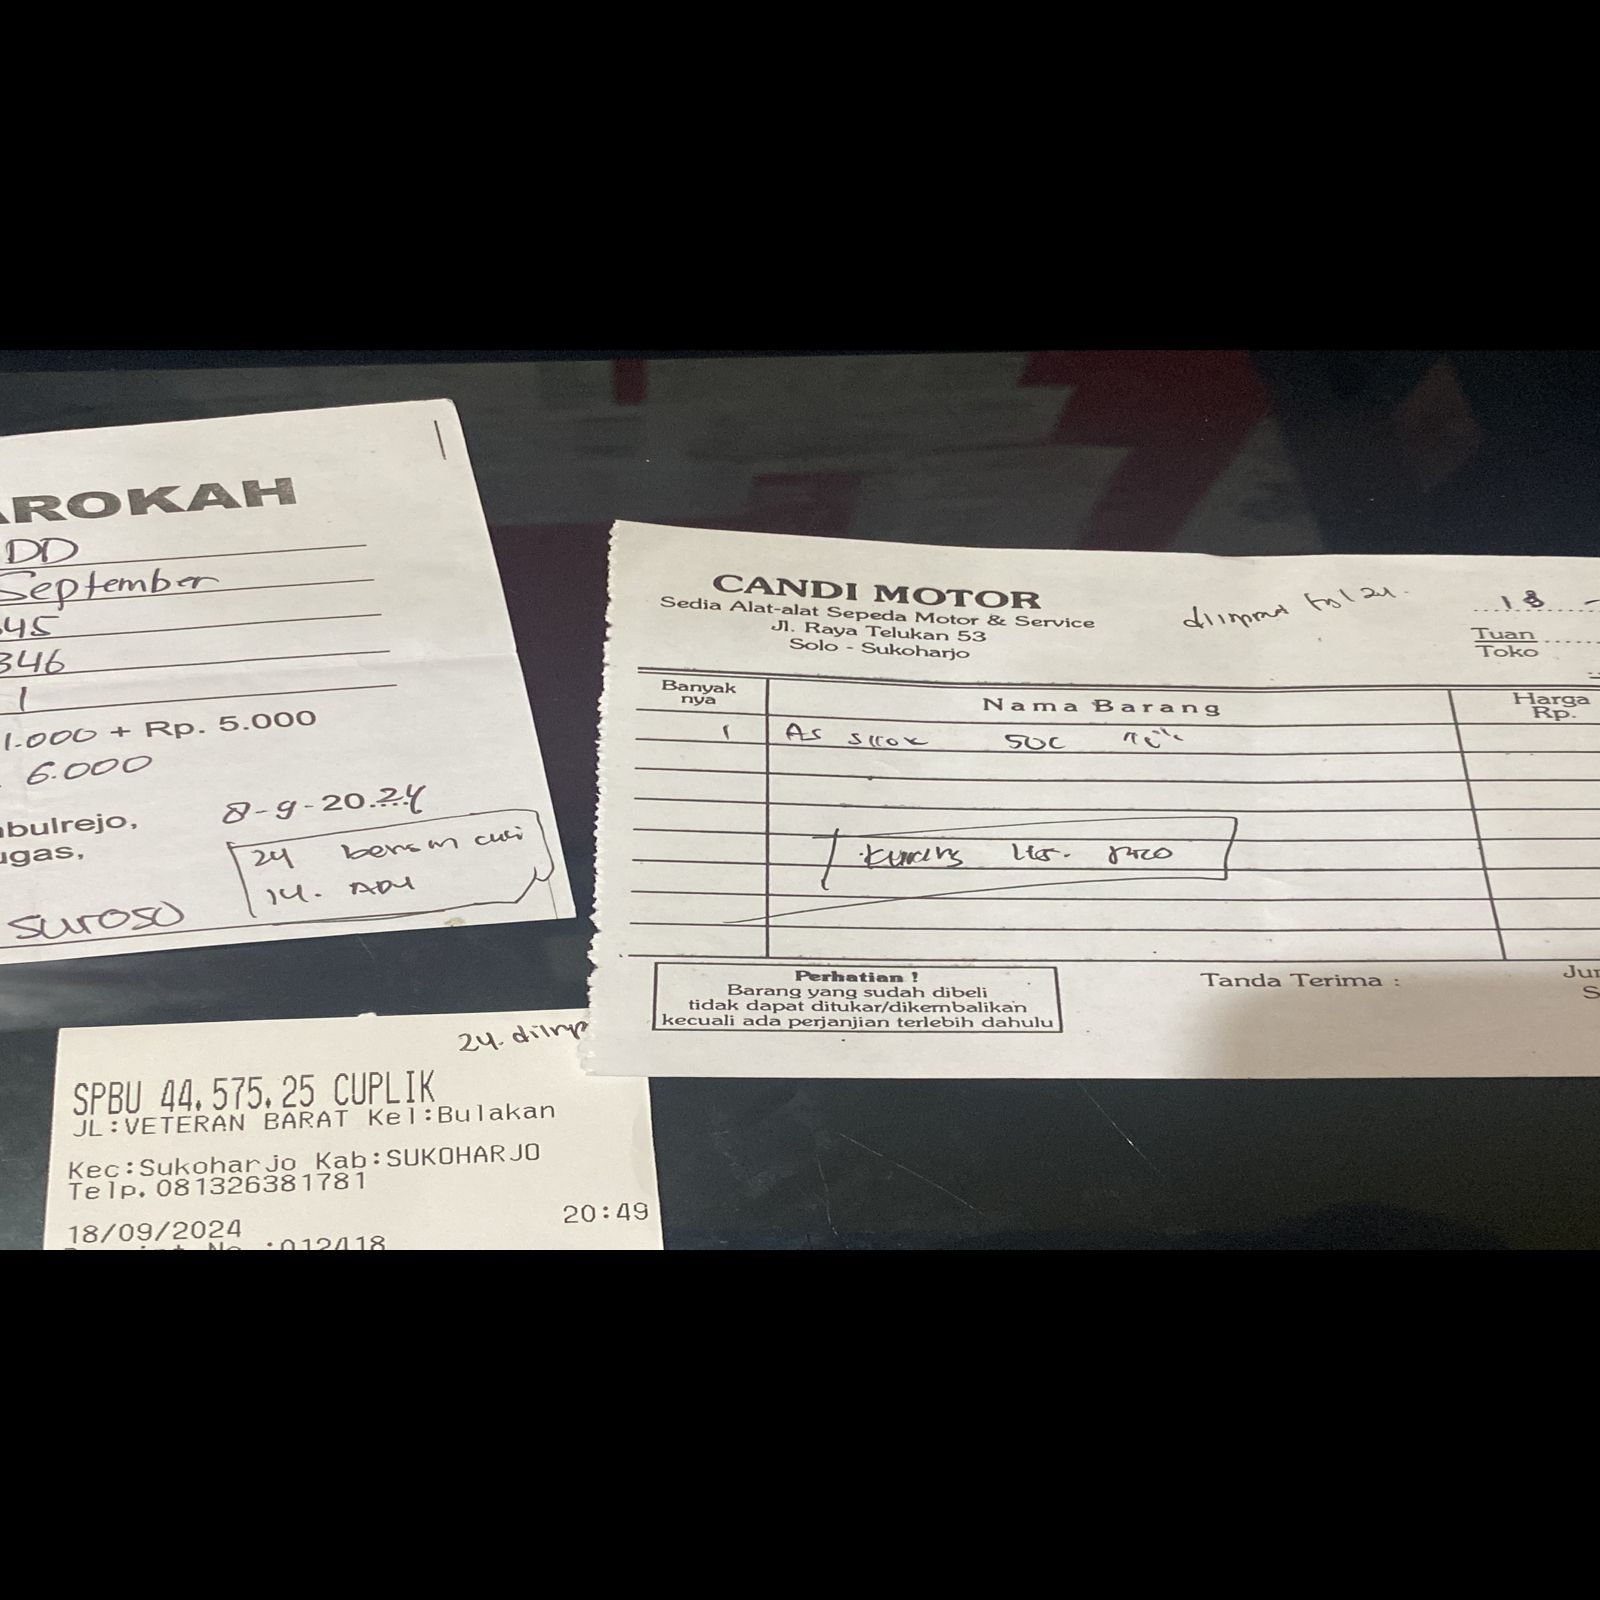 AROKAH
DD
September
345
346
1
1.000 + Rp. 5.000
6.000
8-9-20.24
bulrejo,
ugas,
24 bensin cuci
14. ADM
suroso
CANDI MOTOR
Sedia Alat-alat Sepeda Motor & Service
Jl. Raya Telukan 53
Solo - Sukoharjo
tgl 24.
18 -
Tuan
Toko
Banyak
nya
Nama Barang
Harga
Rp.
1 As
Perhatian !
Barang yang sudah dibeli
tidak dapat ditukar/dikembalikan
kecuali ada perjanjian terlebih dahulu
Tanda Terima :
24.
SPBU 44.575.25 CUPLIK
JL:VETERAN BARAT Kel:Bulakan
Kec:Sukoharjo Kab:SUKOHARJO
Telp.081326381781
18/09/2024 20:49
:012418